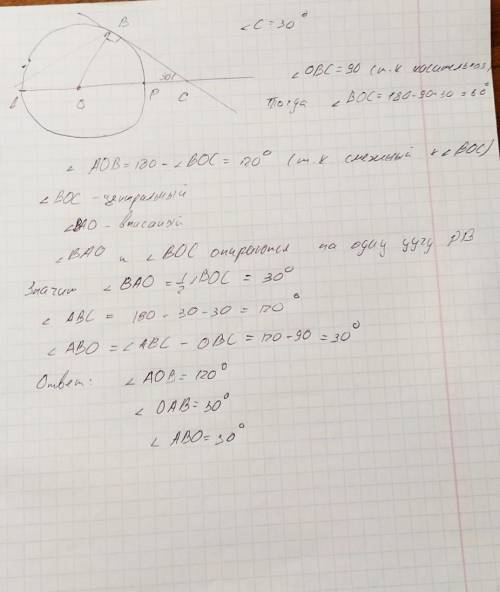 B
30°
A O P C
∠C = 30°
∠OBC = 90 (т.к касательная)
Тогда ∠BOC = 180 - 90 - 30 = 60°
∠ AOB = 180 - ∠BOC = 120° (т.к смежный с ∠BOC)
∠BOC - центральный
∠BAO - вписаный
∠BAO и ∠BOC опираются на одну дугу PB
Значит ∠BAO = 1/2 ∠BOC = 30°
∠ ABC = 180 - 30 - 30 = 120°
∠ ABO = ∠ABC - OBC = 120 - 90 = 30°
Ответ: ∠AOB = 120°
∠ OAB = 30°
∠ ABO = 30°